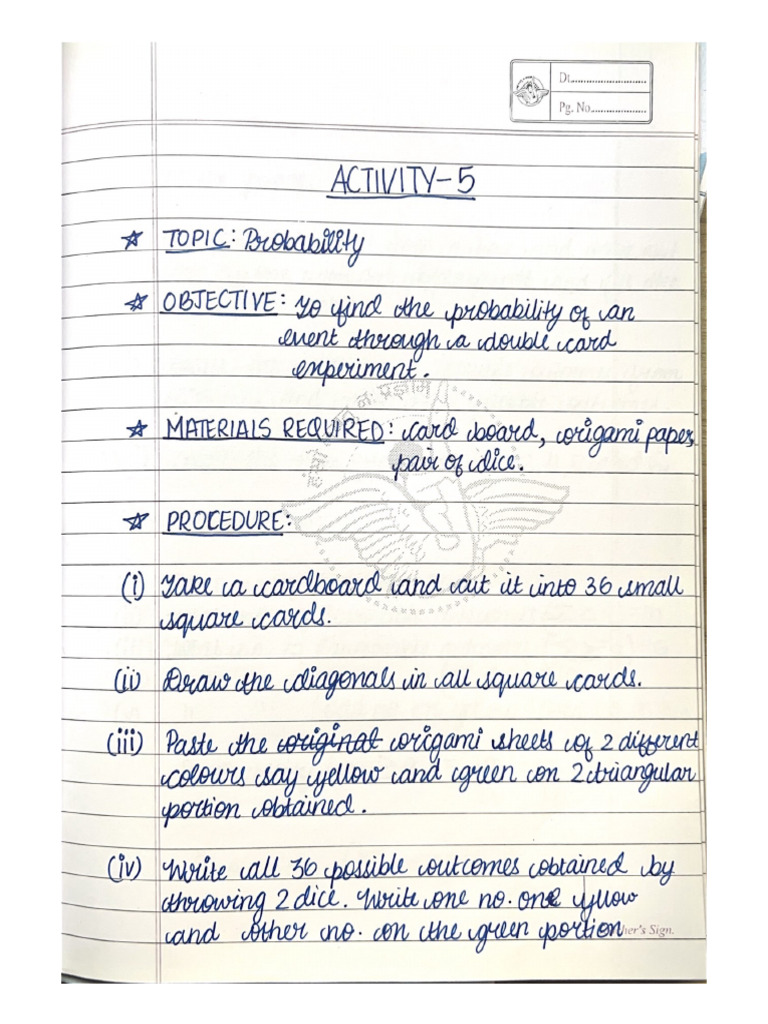 Dt.
Pg. No.
ACTIVITY-5
☆ TOPIC: Probability
☆ OBJECTIVE: To find the probability of an
event through a double card
experiment.
☆ MATERIALS REQUIRED: Card board, origami paper,
pair of dice.
☆ PROCEDURE:
(i) Take a cardboard and cut it into 36 small
square cards.
(ii) Draw the diagonals in all square cards.
(iii) Paste the original origami sheets of 2 different
colours say yellow and green on 2 triangular
portion obtained.
(iv) Write all 36 possible outcomes obtained by
throwing 2 dice. Write one no. one yllow
and other no. on the green portion
Sign.